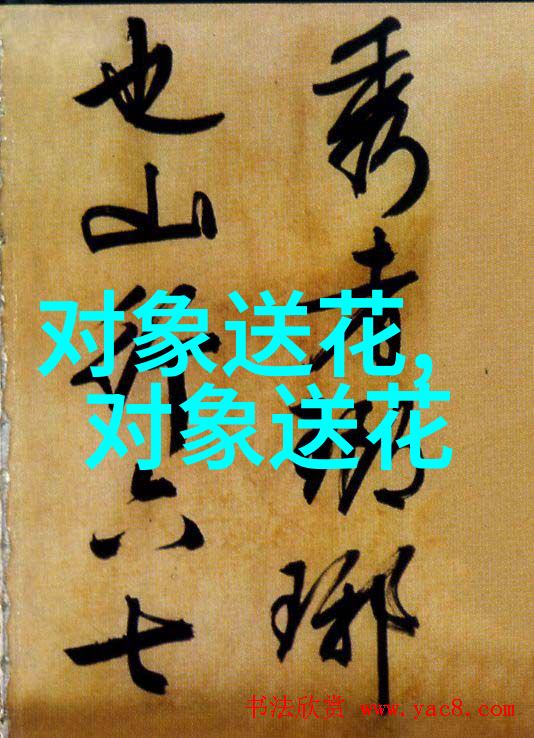 秀者瑯琊
也山行六七
对象送花,
对象送花
书法欣赏 www.yac8.com